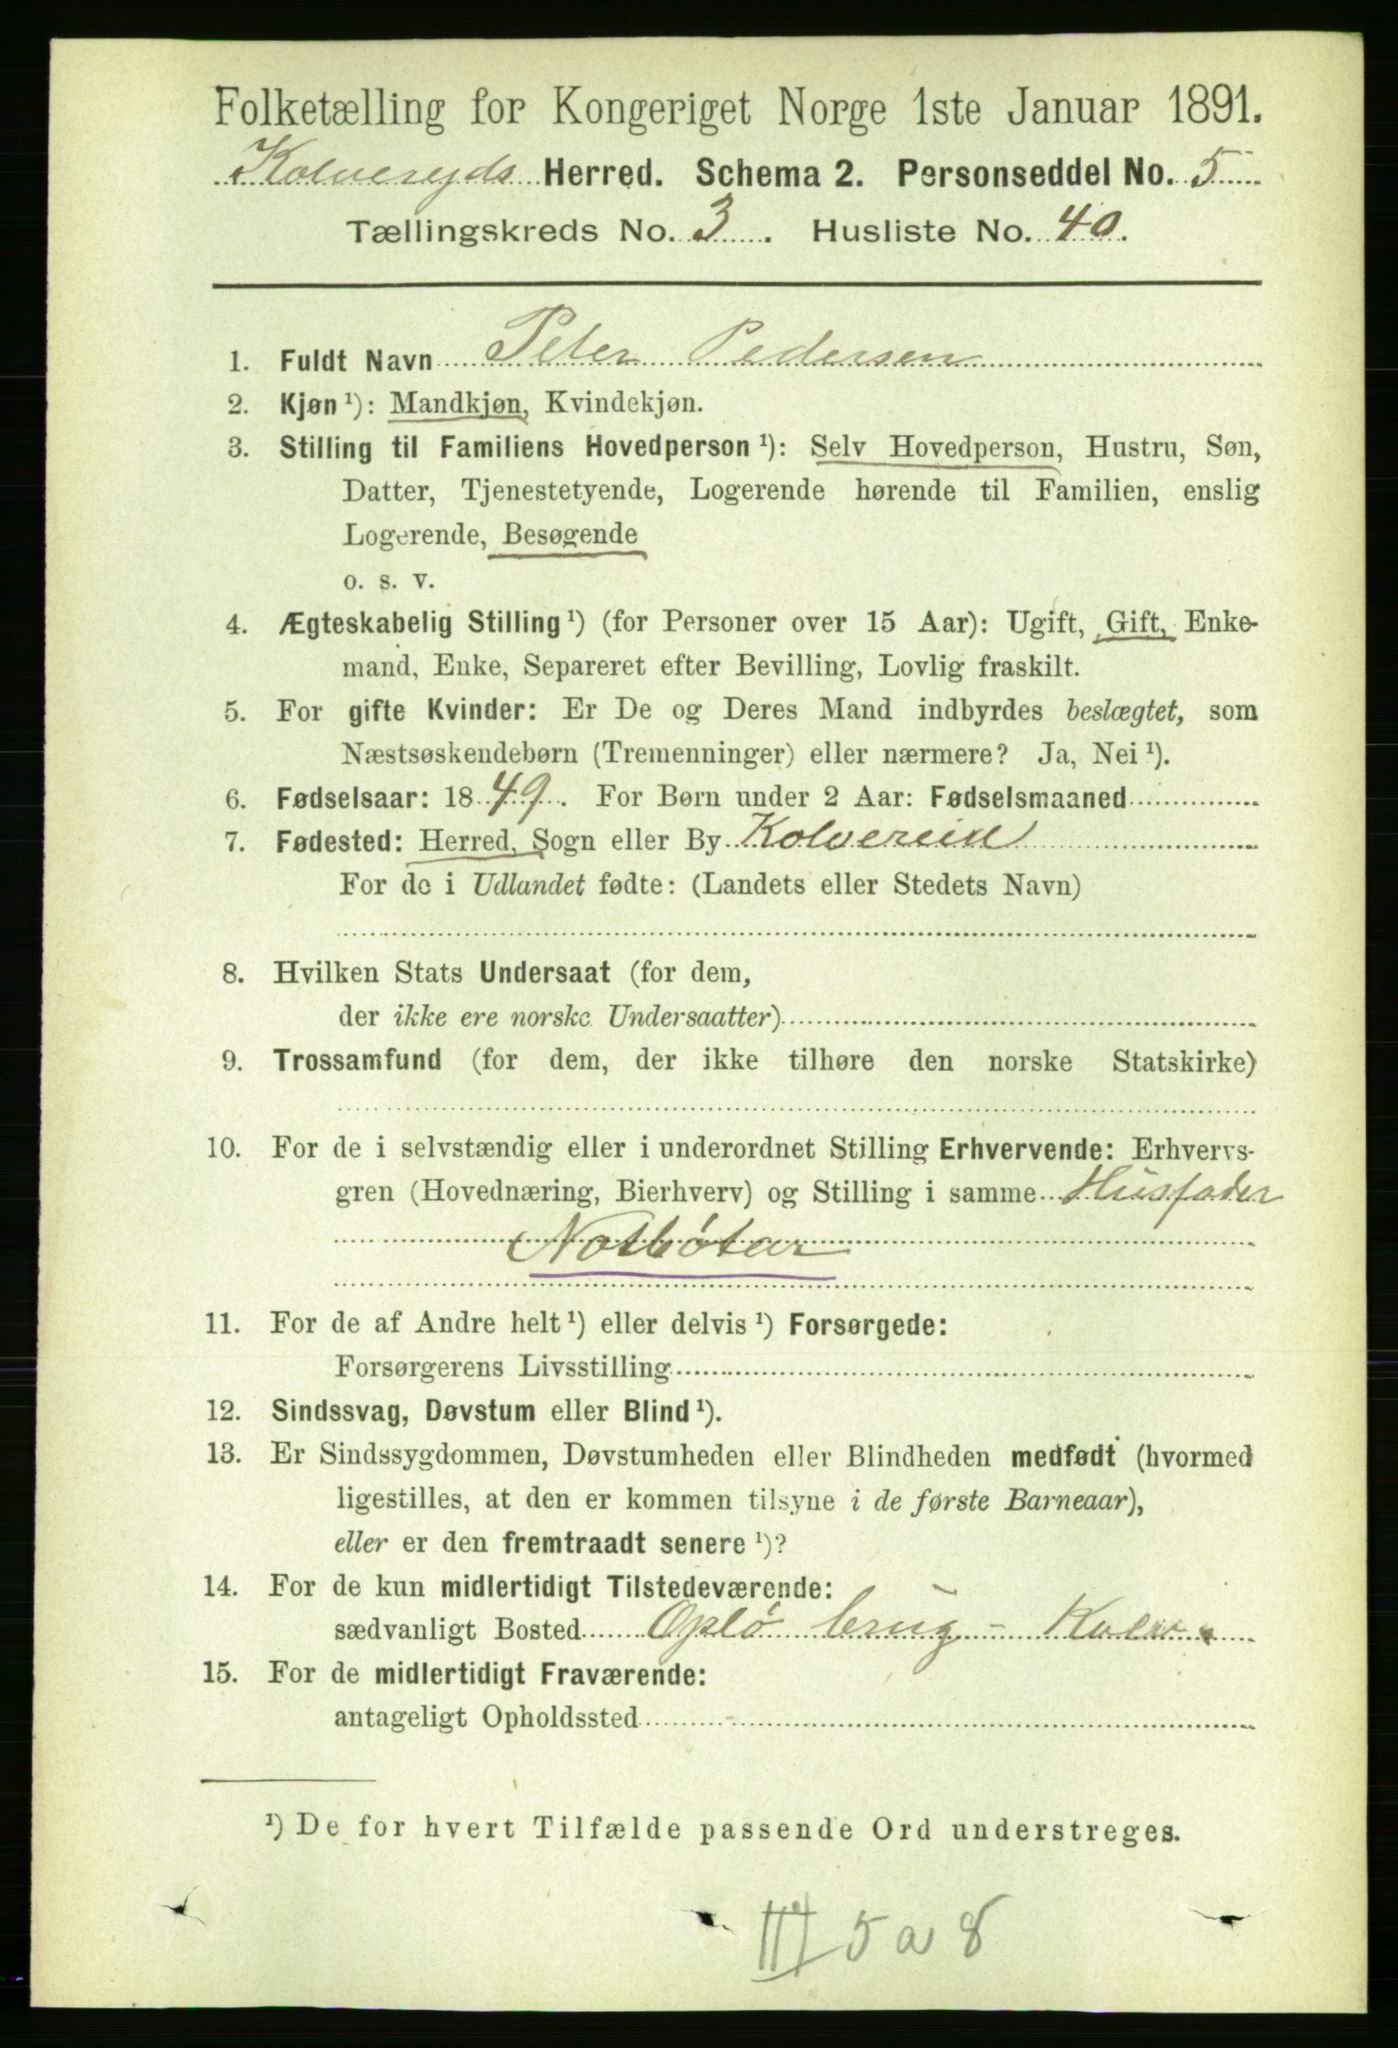 Folketælling for Kongeriget Norge 1ste Januar 1891.
Kolvereyds Herred. Schema 2. Personseddel No. 5
Tællingskreds No. 3. Husliste No. 40.
1. Fuldt Navn Peter Pedersen
2. Kjøn ¹): Mandkjøn, Kvindekjøn.
3. Stilling til Familiens Hovedperson ¹): Selv Hovedperson, Hustru, Søn,
Datter, Tjenestetyende, Logerende hørende til Familien, enslig
Logerende, Besøgende
o. s. v.
4. Ægteskabelig Stilling ¹) (for Personer over 15 Aar): Ugift, Gift, Enke-
mand, Enke, Separeret efter Bevilling, Lovlig fraskilt.
5. For gifte Kvinder: Er De og Deres Mand indbyrdes beslægtet, som
Næstsøskendebørn (Tremenninger) eller nærmere? Ja, Nei ¹).
6. Fødselsaar: 1849. For Børn under 2 Aar: Fødselsmaaned
7. Fødested: Herred, Sogn eller By Kolvereid
For de i Udlandet fødte: (Landets eller Stedets Navn)
8. Hvilken Stats Undersaat (for dem,
der ikke ere norske Undersaatter)
9. Trossamfund (for dem, der ikke tilhøre den norske Statskirke)
10. For de i selvstændig eller i underordnet Stilling Erhvervende: Erhvervs-
gren (Hovednæring, Bierhverv) og Stilling i samme Husfader
Notbøtar
11. For de af Andre helt ¹) eller delvis ¹) Forsørgede:
Forsørgerens Livsstilling
12. Sindssvag, Døvstum eller Blind ¹).
13. Er Sindssygdommen, Døvstumheden eller Blindheden medfødt (hvormed
ligestilles, at den er kommen tilsyne i de første Barneaar),
eller er den fremtraadt senere ¹)?
14. For de kun midlertidigt Tilstedeværende:
sædvanligt Bosted Oplö brug -
15. For de midlertidigt Fraværende:
antageligt Opholdssted
¹) De for hvert Tilfælde passende Ord understreges.
5 a 8